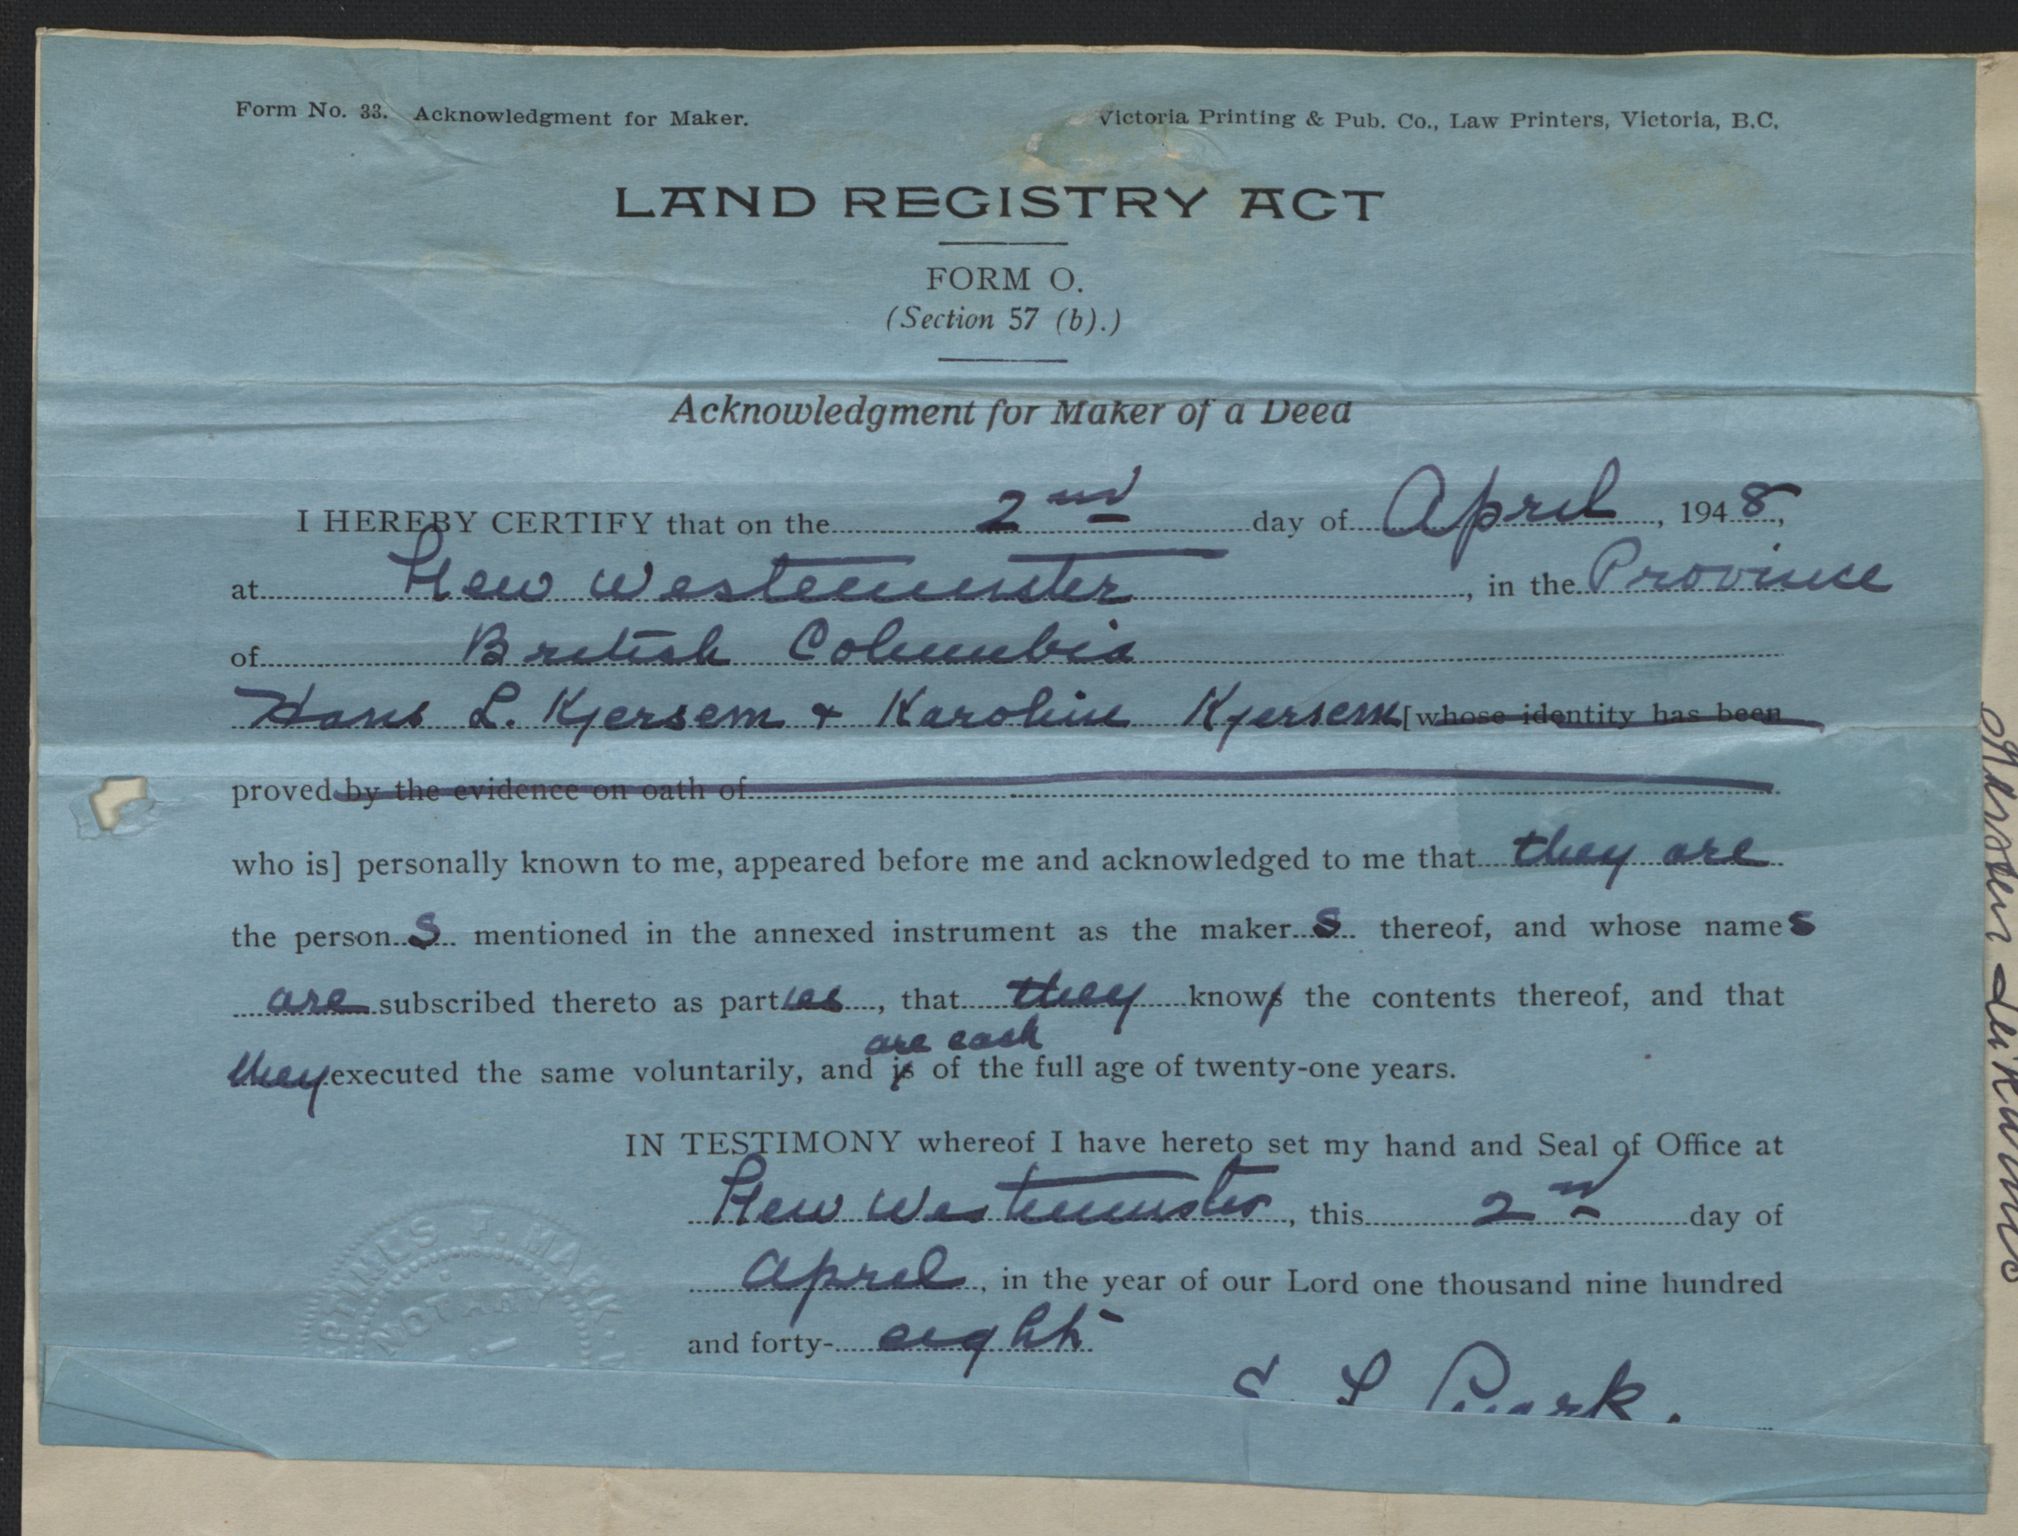 Form No. 33. Acknowledgment for Maker.
Victoria Printing & Pub. Co., Law Printers, Victoria, B.C.
LAND REGISTRY ACT
FORM O.
(Section 57 (b).)
Acknowledgment for Maker of a Deed
I HEREBY CERTIFY that on the 2nd day of April, 1948,
at New Westminster, in the Province
of British Columbia
Hans L. Kjersem & Karoline Kjersem [whose identity has been
proved by the evidence on oath of
who is] personally known to me, appeared before me and acknowledged to me that they are
the person s mentioned in the annexed instrument as the maker s thereof, and whose names
are subscribed thereto as parties, that they knows the contents thereof, and that
are each
they executed the same voluntarily, and is of the full age of twenty-one years.
IN TESTIMONY whereof I have hereto set my hand and Seal of Office at
New Westminster, this 2nd day of
April, in the year of our Lord one thousand nine hundred
and forty-eight
PTIMES F. MARK
NOTARY